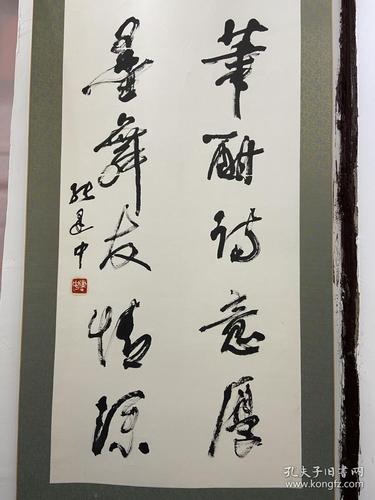 筆酣詩意厚
墨舞友情深
張建中
孔夫子旧书网
www.kongfz.com